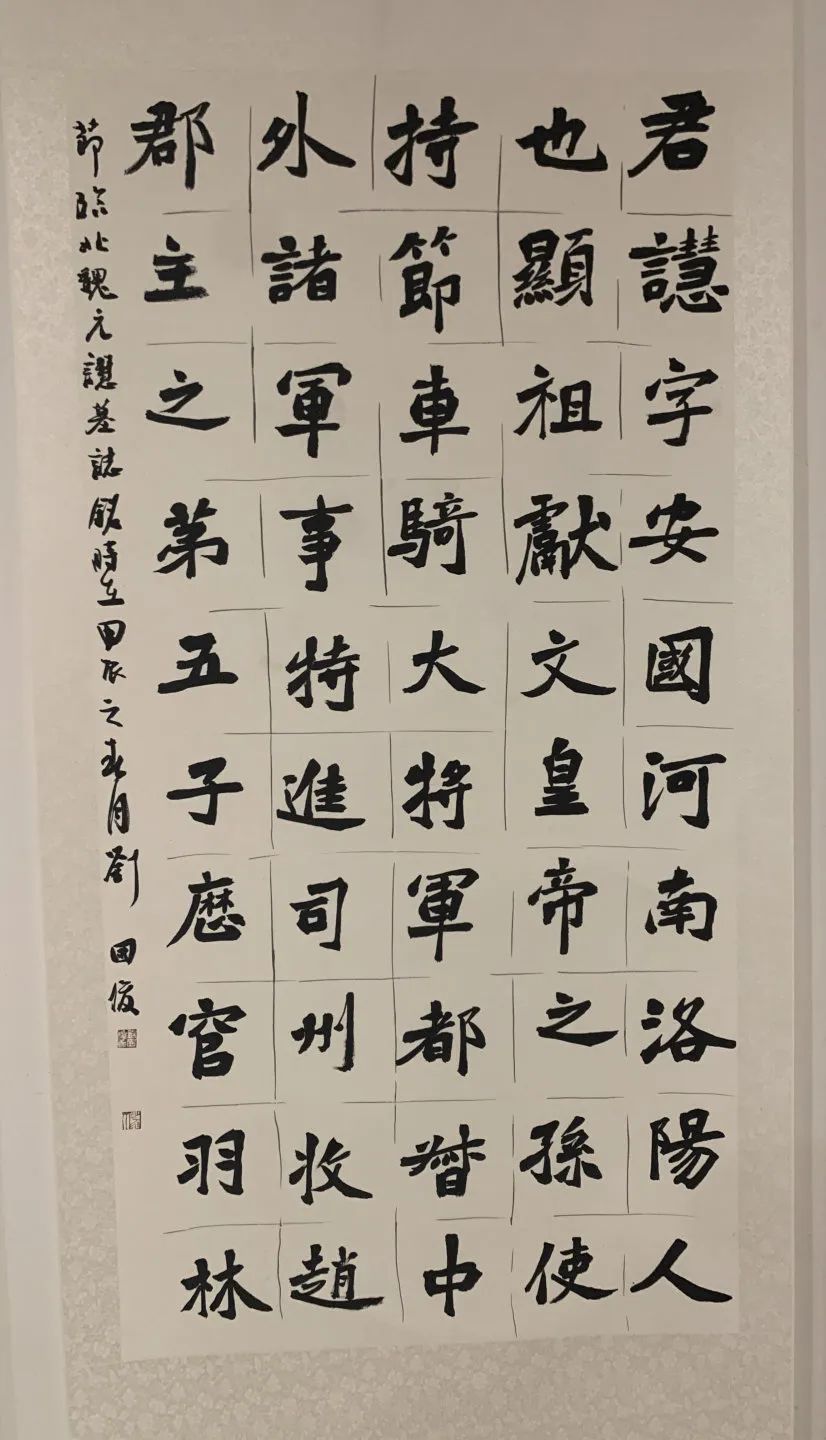 君譿字安國河南洛陽人
也顯祖獻文皇帝之孫使
持節車騎大將軍都督中
外諸軍事特進司州牧趙
郡主之苐五子歷官羽林
節臨北魏元譿墓誌銘時在甲辰之春月劉國俊